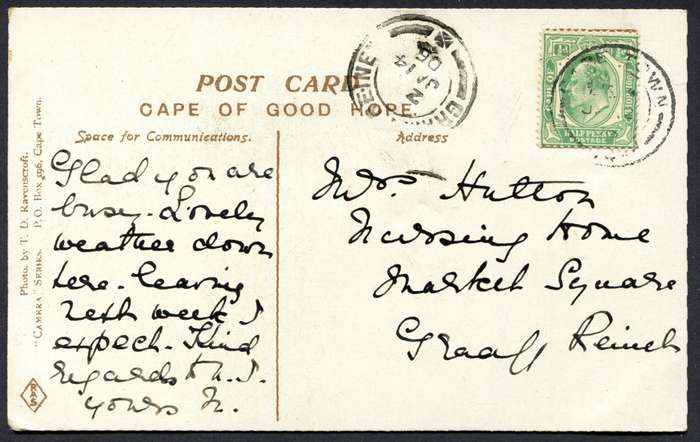 POST CARD
CAPE OF GOOD HOPE
Space for Communications.
Address
Glad you are
busy. Lovely
weather down
here. leaving
next week I
expect. Kind
regards to
yours
Mrs. Hutton
Nursing Home
Market Square
Graaff Reinet
HALFPENNY
POSTAGE
Photo. by T. D. Ravenscroft.
"CAMERA" SERIES. P.O. Box 596, Cape Town.
JA
14